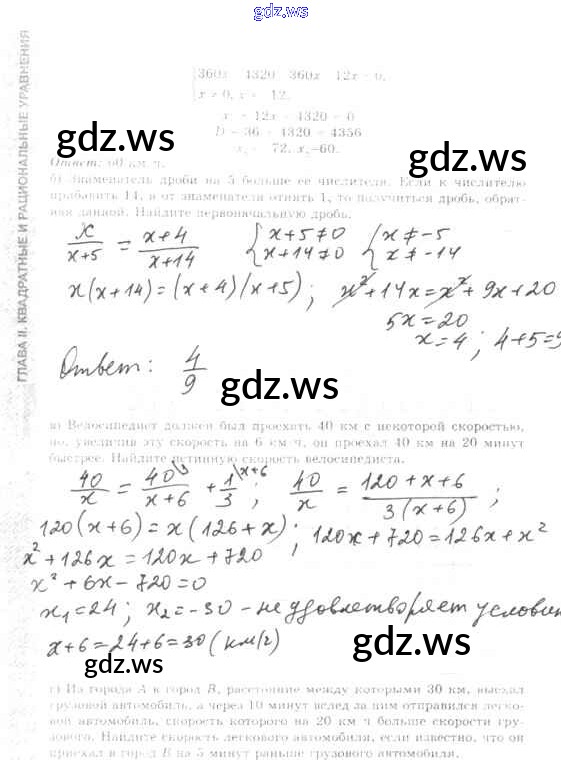 gdz.ws
ГЛАВА II. КВАДРАТНЫЕ И РАЦИОНАЛЬНЫЕ УРАВНЕНИЯ
360x 4320 360x 12x 0,
x ≠ 0, x 12.
x 12x 4320 0
D 36 4320 4356
x 72, x 60.
gdz.ws
gdz.ws
Ответ: 60 км ч.
б) Знаменатель дроби на 5 больше ее числителя. Если к числителю
прибавить 14, а от знаменателя отнять 1, то получиться дробь, обрат-
ная данной. Найдите первоначальную дробь.
x/(x+5) = (x+4)/(x+14) { x+5≠0 x+14≠0 { x≠-5 x≠-14
x(x+14)=(x+4)(x+5); x²+14x=x²+9x+20
5x=20
x=4; 4+5=9
Ответ: 4/9
gdz.ws
в) Велосипедист должен был проехать 40 км с некоторой скоростью,
но, увеличив эту скорость на 6 км ч, он проехал 40 км на 20 минут
быстрее. Найдите истинную скорость велосипедиста.
40/x = 40/(x+6) \3 + 1/3 \x+6; 40/x = (120+x+6)/(3(x+6));
120(x+6)=x(126+x); 120x+720=126x+x²
x²+126x=120x+720
x²+6x-720=0
x₁=24; x₂=-30 - не удовлетворяет услови
x+6=24+6=30(км/г)
gdz.ws
gdz.ws
г) Из города A в город B, расстояние между которыми 30 км, выехал
грузовой автомобиль, а через 10 минут вслед за ним отправился легко-
вой автомобиль, скорость которого на 20 км ч больше скорости гру-
зового. Найдите скорость легкового автомобиля, если известно, что он
приехал в город B на 5 минут раньше грузового автомобиля.
gdz.ws